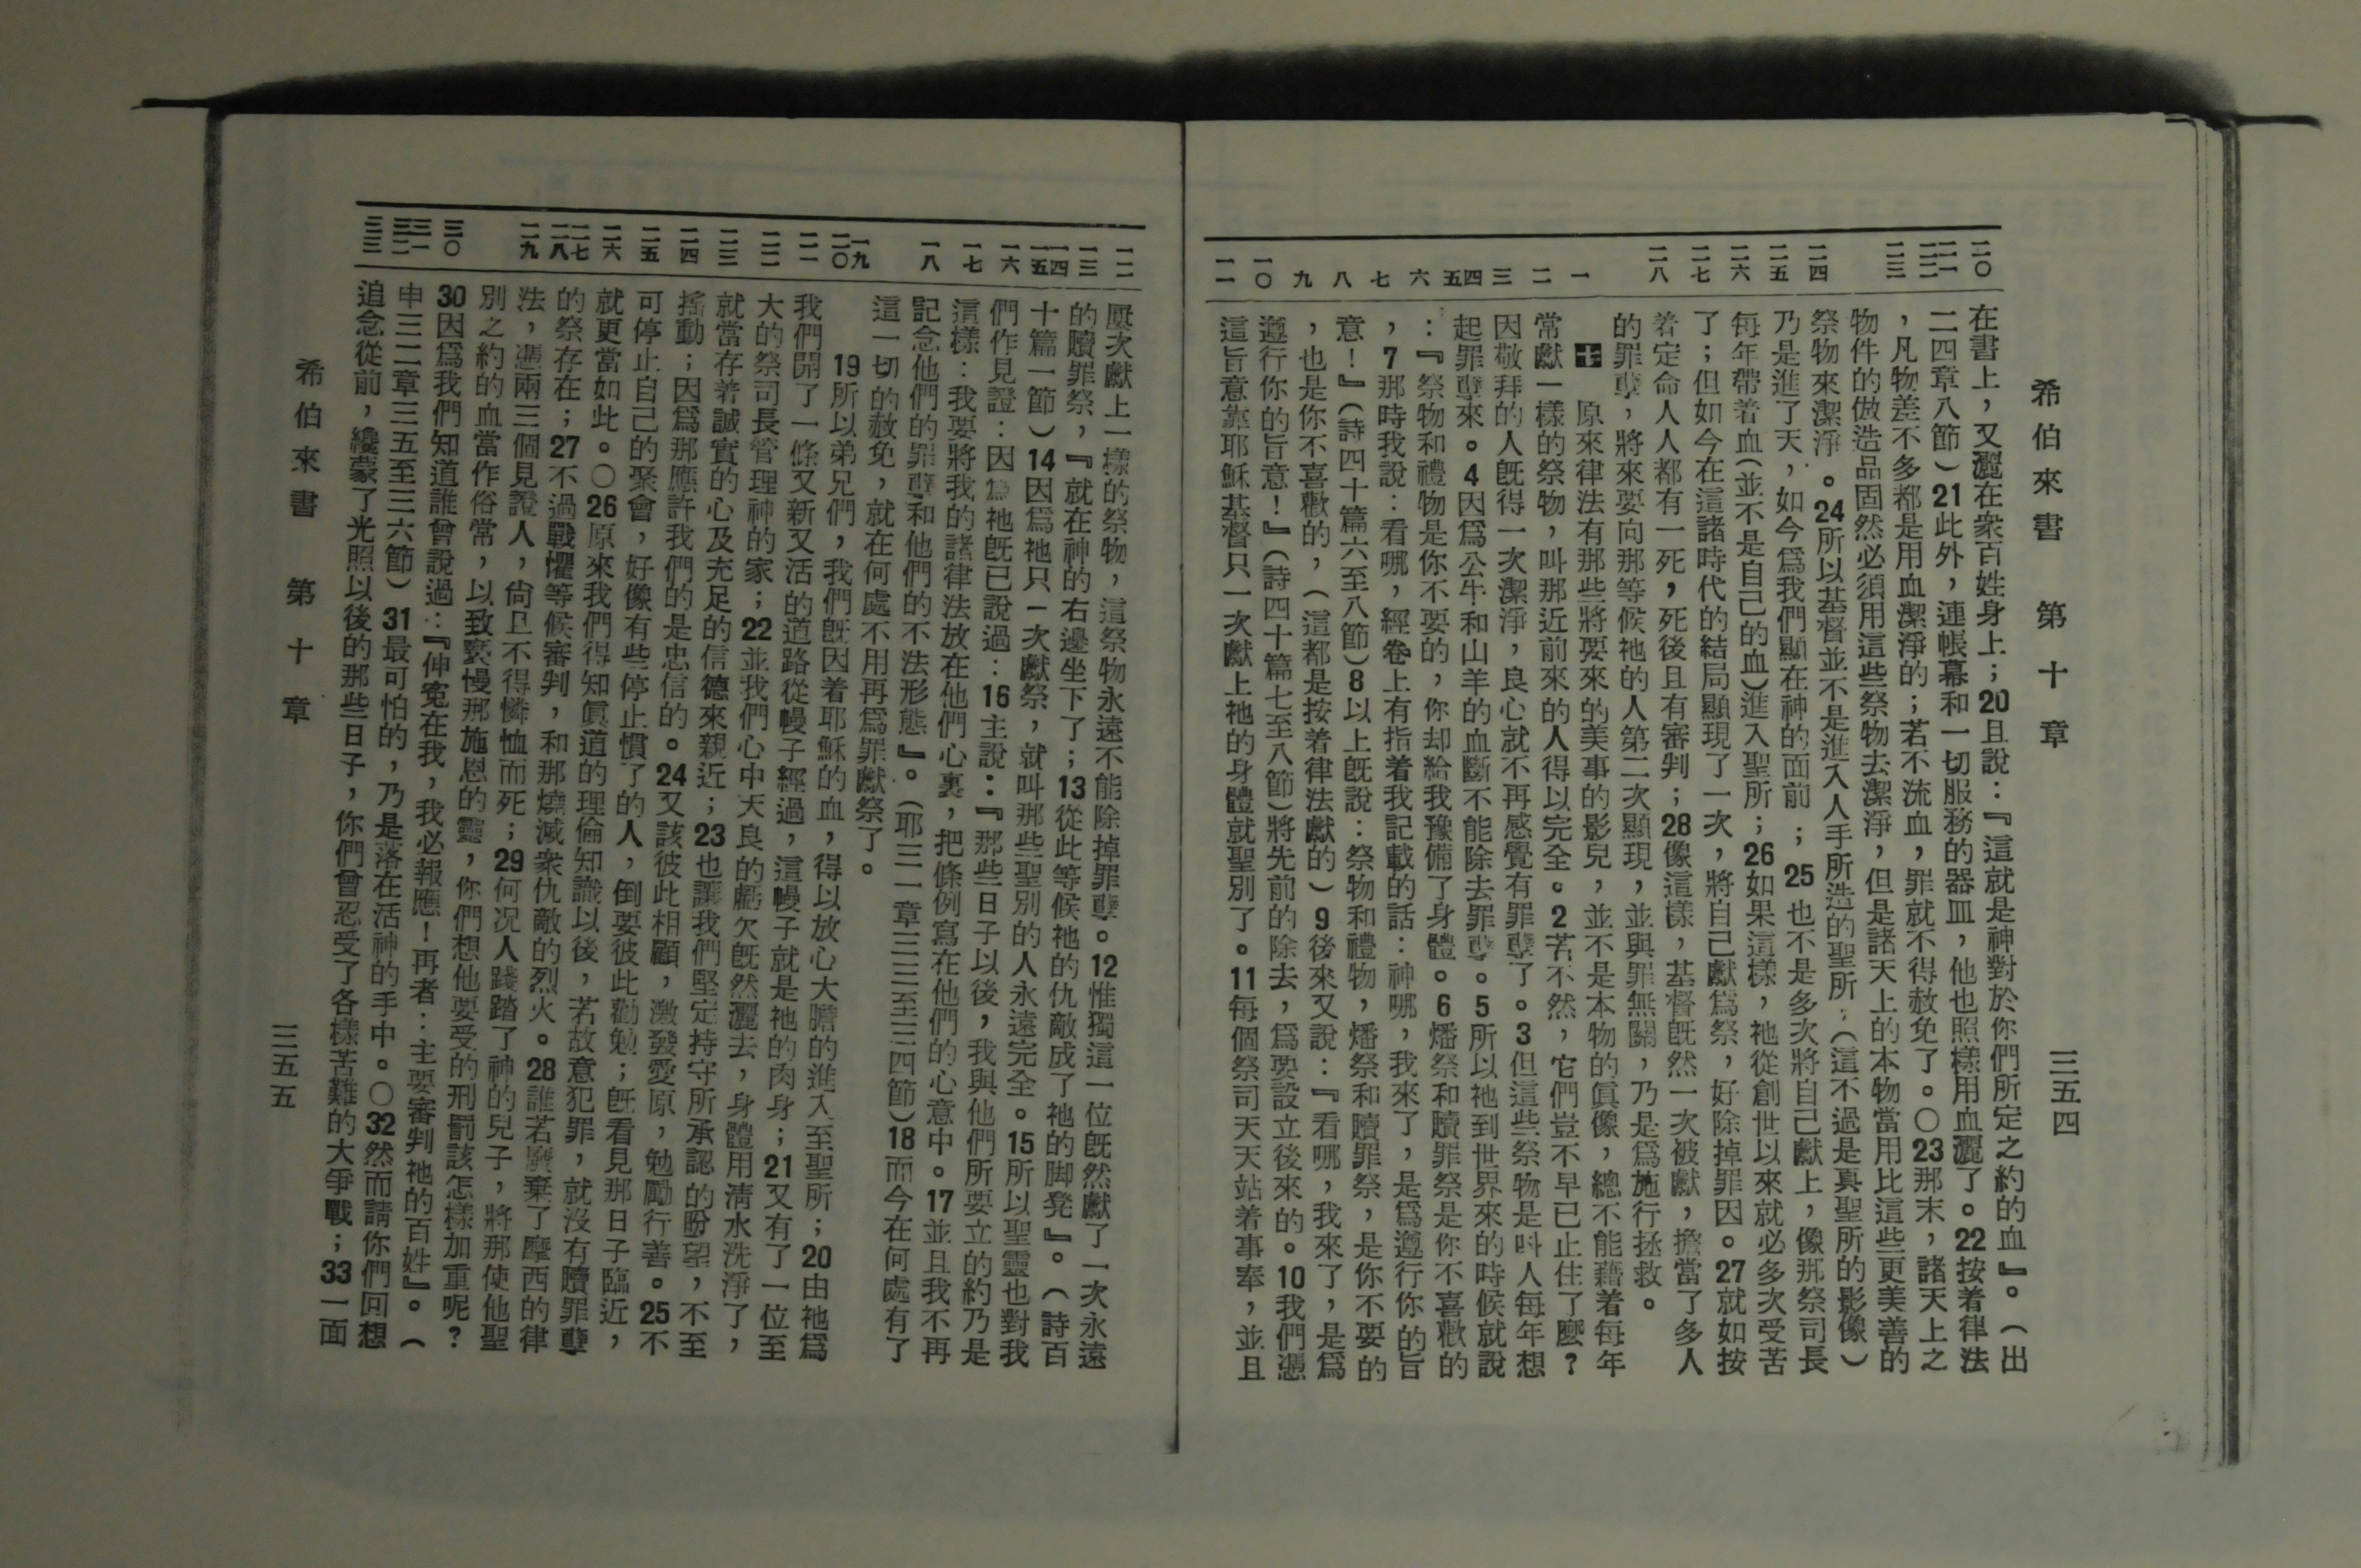 希伯來書　第十章　三五四
二〇
二一
二二
二三
二四
二五
二六
二七
二八
一
二
三
四
五
六
七
八
九
一〇
一一
在書上，又灑在衆百姓身上；20且說：『這就是神對於你們所定之約的血』。（出
二四章八節）21此外，連帳幕和一切服務的器皿，他也照樣用血灑了。22按着律法
，凡物差不多都是用血潔淨的；若不流血，罪就不得赦免了。〇23那末，諸天上之
物件的倣造品固然必須用這些祭物去潔淨，但是諸天上的本物當用比這些更美善的
祭物來潔淨。24所以基督並不是進入人手所造的聖所，（這不過是真聖所的影像）
乃是進了天，如今爲我們顯在神的面前；25也不是多次將自己獻上，像那祭司長
每年帶着血（並不是自己的血）進入聖所；26如果這樣，祂從創世以來就必多次受苦
了；但如今在這諸時代的結局顯現了一次，將自己獻爲祭，好除掉罪因。27就如按
着定命人人都有一死，死後且有審判；28像這樣，基督旣然一次被獻，擔當了多人
的罪孽，將來要向那等候祂的人第二次顯現，並與罪無關，乃是爲施行拯救。
十　原來律法有那些將要來的美事的影兒，並不是本物的眞像，總不能藉着每年
常獻一樣的祭物，叫那近前來的人得以完全。2若不然，它們豈不早已止住了麼？
因敬拜的人旣得一次潔淨，良心就不再感覺有罪孽了。3但這些祭物是叫人每年想
起罪孽來。4因爲公牛和山羊的血斷不能除去罪孽。5所以祂到世界來的時候就說
：『祭物和禮物是你不要的，你却給我豫備了身體。6燔祭和贖罪祭是你不喜歡的
，7那時我說：看哪，經卷上有指着我記載的話：神哪，我來了，是爲遵行你的旨
意！』（詩四十篇六至八節）8以上旣說：祭物和禮物，燔祭和贖罪祭，是你不要的
，也是你不喜歡的，（這都是按着律法獻的）9後來又說：『看哪，我來了，是爲
遵行你的旨意！』（詩四十篇七至八節）將先前的除去，爲要設立後來的。10我們憑
這旨意靠耶穌基督只一次獻上祂的身體就聖別了。11每個祭司天天站着事奉，並且
一二
一三
一四
一五
一六
一七
一八
一九
二〇
二一
二二
二三
二四
二五
二六
二七
二八
二九
三〇
三一
三二
三三
屢次獻上一樣的祭物，這祭物永遠不能除掉罪孽。12惟獨這一位旣然獻了一次永遠
的贖罪祭，『就在神的右邊坐下了；13從此等候祂的仇敵成了祂的脚凳』。（詩百
十篇一節）14因爲祂只一次獻祭，就叫那些聖別的人永遠完全。15所以聖靈也對我
們作見證：因爲祂旣已說過：16主說：『那些日子以後，我與他們所要立的約乃是
這樣：我要將我的諸律法放在他們心裏，把條例寫在他們的心意中。17並且我不再
記念他們的罪孽和他們的不法形態』。（耶三一章三三至三四節）18而今在何處有了
這一切的赦免，就在何處不用再爲罪獻祭了。
19所以弟兄們，我們旣因着耶穌的血，得以放心大膽的進入至聖所；20由祂爲
我們開了一條又新又活的道路從幔子經過，這幔子就是祂的肉身；21又有了一位至
大的祭司長管理神的家；22並我們心中天良的虧欠旣然灑去，身體用清水洗淨了，
就當存着誠實的心及充足的信德來親近；23也讓我們堅定持守所承認的盼望，不至
搖動；因爲那應許我們的是忠信的。24又該彼此相顧，激發愛原，勉勵行善。25不
可停止自己的聚會，好像有些停止慣了的人，倒要彼此勸勉；旣看見那日子臨近，
就更當如此。〇26原來我們得知眞道的理倫知識以後，若故意犯罪，就沒有贖罪孽
的祭存在；27不過戰懼等候審判，和那燒滅衆仇敵的烈火。28誰若廢棄了摩西的律
法，憑兩三個見證人，尙且不得憐恤而死；29何况人踐踏了神的兒子，將那使他聖
別之約的血當作俗常，以致褻慢那施恩的靈，你們想他要受的刑罰該怎樣加重呢？
30因爲我們知道誰曾說過：『伸寃在我，我必報應！再者：主要審判祂的百姓』。（
申三二章三五至三六節）31最可怕的，乃是落在活神的手中。〇32然而請你們回想
追念從前，纔蒙了光照以後的那些日子，你們曾忍受了各樣苦難的大爭戰；33一面
希伯來書　第十章　三五五